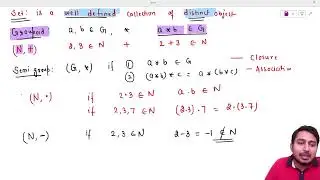 Set: is a well defined collection of distinct object
Groupoid a, b ∈ G, * a*b ∈ G
(N, +) 2, 3 ∈ N + 2+3 ∈ N
Semi group: (G, *) if ① a*b ∈ G — Closure
② (a*b)*c = a*(b*c) — Associative
(N, ·) if 2·3 ∈ N
if 2,3,7 ∈ N (2·3)·7 = 2·(3·7)
(N, −) if 2,3 ∈ N 2-3 = -1 ∉ N